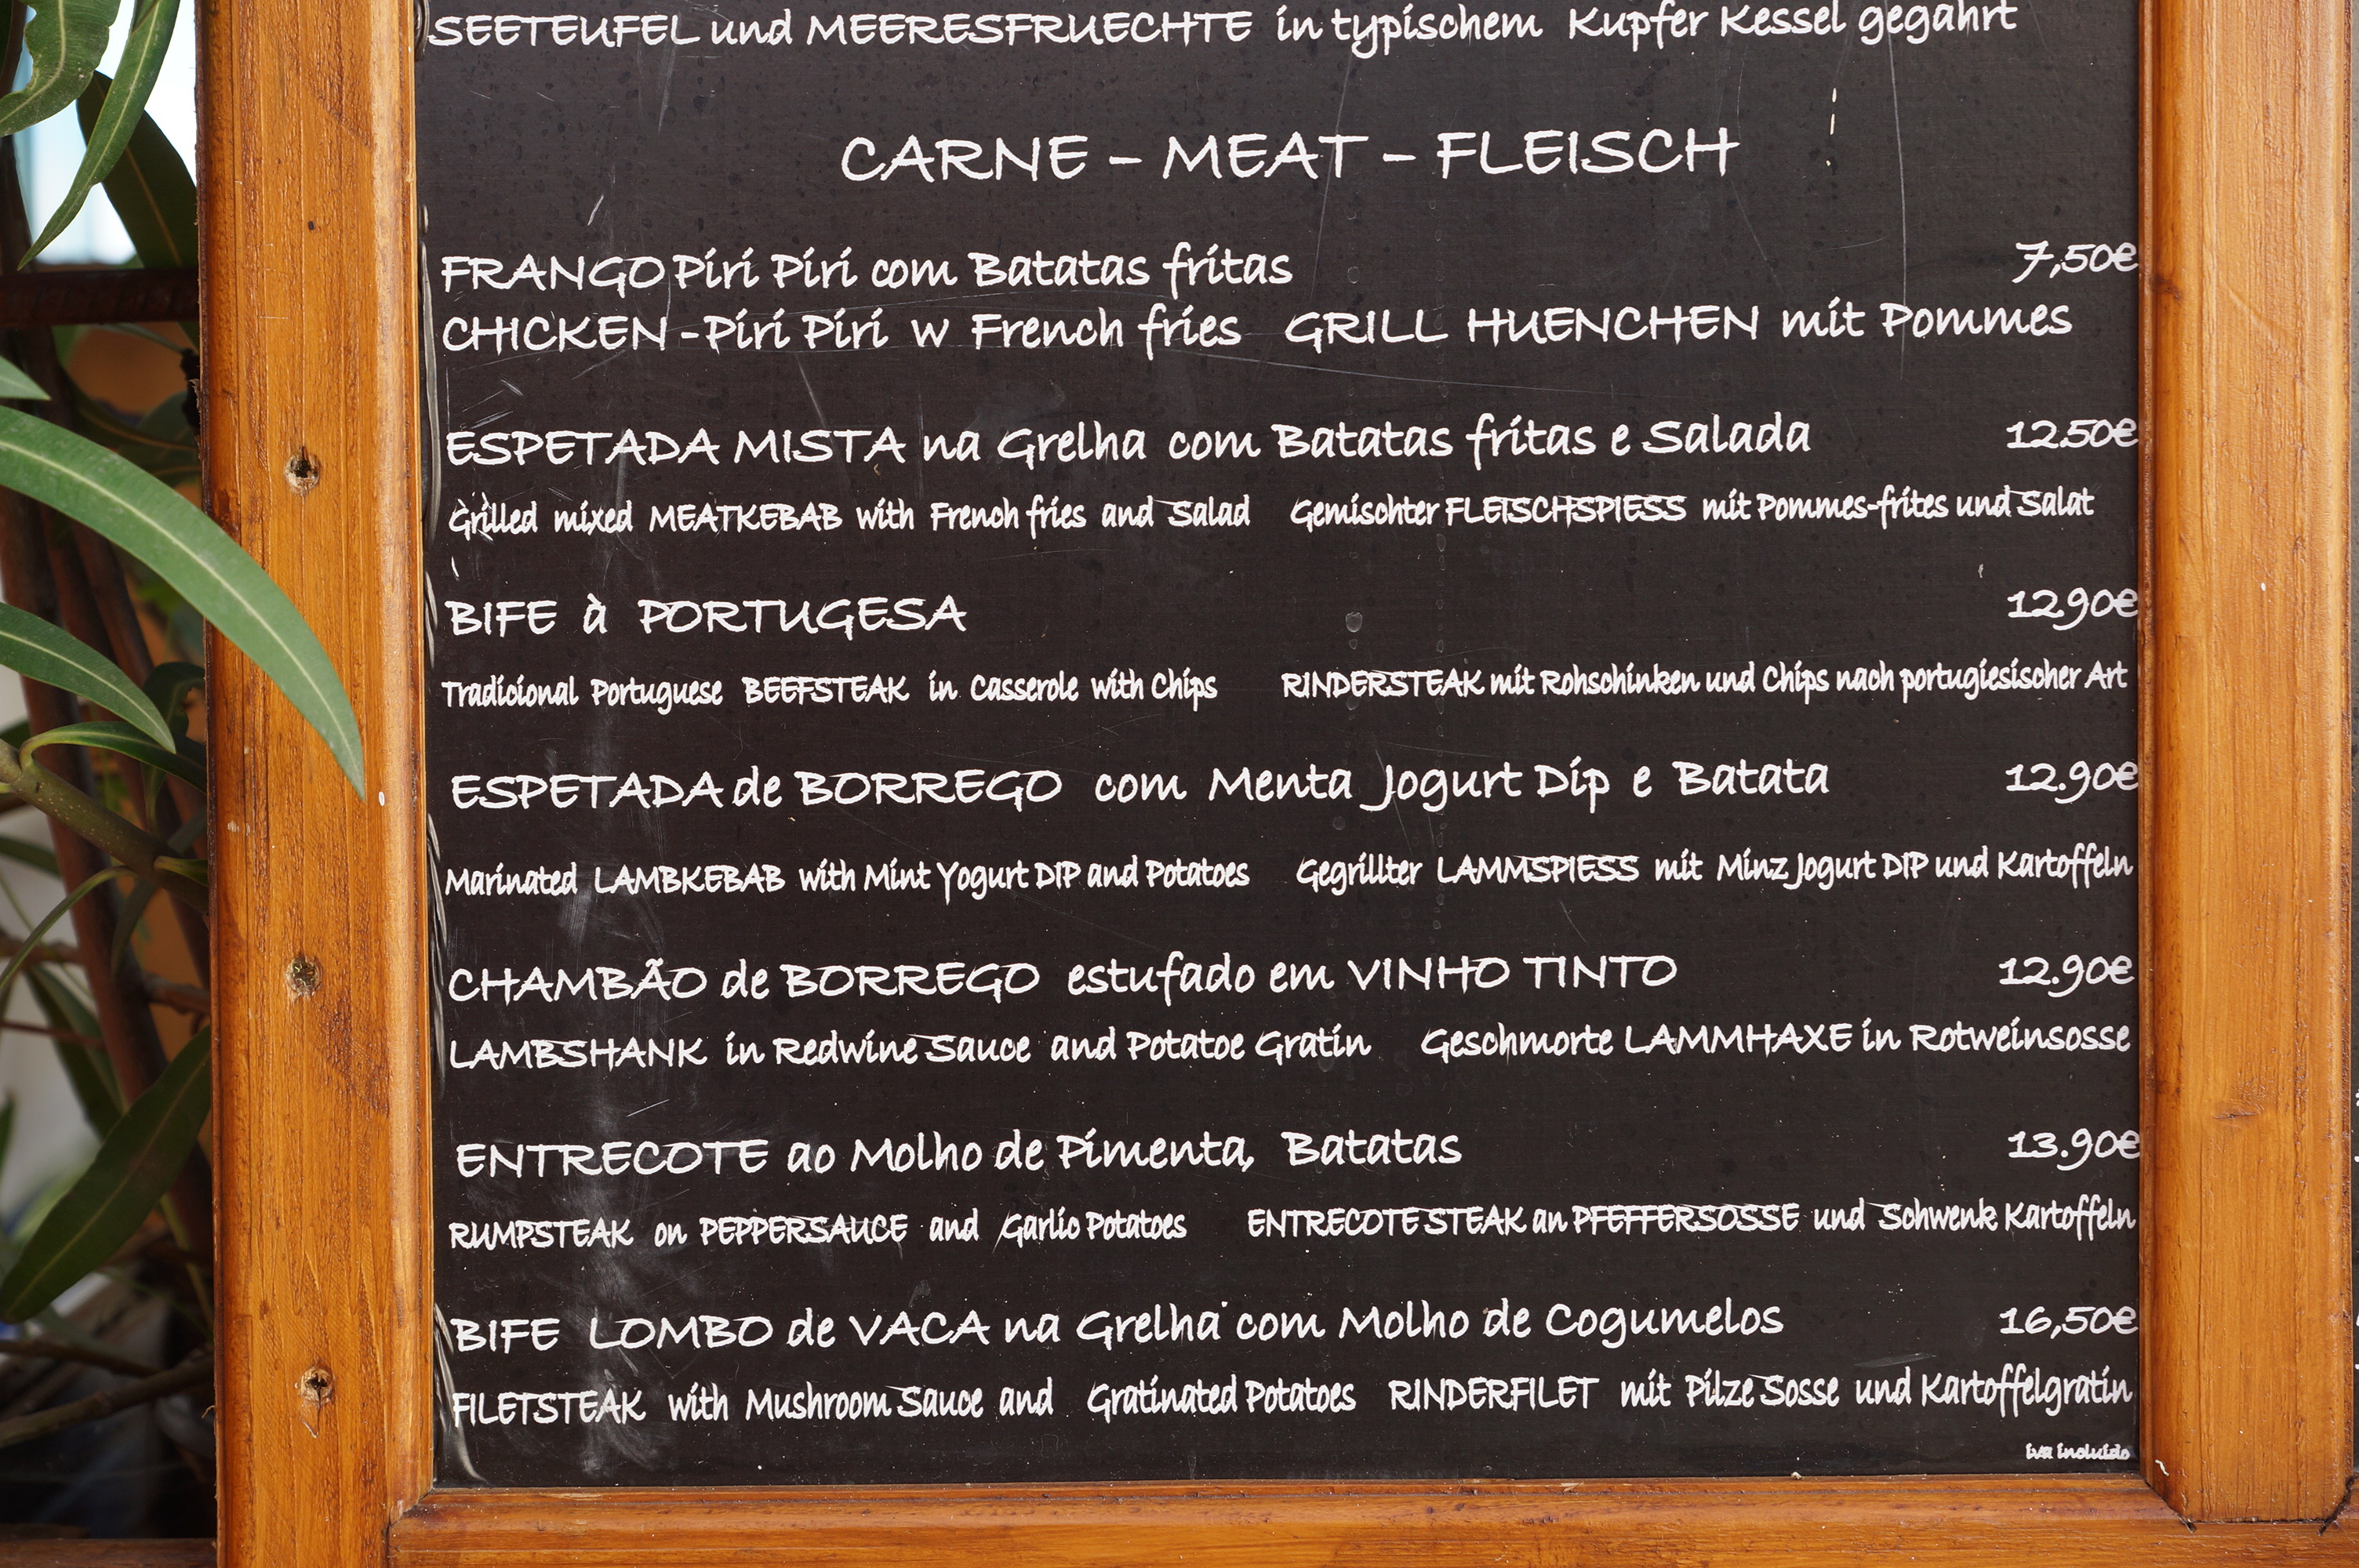 SEETEUFEL und MEERESFRUECHTE in typischem Kupfer Kessel gegährt
CARNE – MEAT – FLEISCH
FRANGO Piri Piri com Batatas fritas 7,50€
CHICKEN -Piri Piri w French fries GRILL HUENCHEN mit Pommes
ESPETADA MISTA na Grelha com Batatas fritas e Salada 12.50€
Grilled mixed MEATKEBAB with French fries and Salad Gemischter FLEISCHSPIESS mit Pommes-frites und Salat
BIFE à PORTUGESA 12.90€
Tradicional Portuguese BEEFSTEAK in Casserole with Chips RINDERSTEAK mit Rohschinken und Chips nach portugiesischer Art
ESPETADA de BORREGO com Menta Jogurt Dip e Batata 12.90€
Marinated LAMBKEBAB with Mint Yogurt DIP and Potatoes Gegrillter LAMMSPIESS mit Minz Jogurt DIP und Kartoffeln
CHAMBÃO de BORREGO estufado em VINHO TINTO 12.90€
LAMBSHANK in Redwine Sauce and Potatoe Gratin Geschmorte LAMMHAXE in Rotweinsosse
ENTRECOTE ao Molho de Pimenta, Batatas 13.90€
RUMPSTEAK on PEPPERSAUCE and Garlic Potatoes ENTRECOTE STEAK an PFEFFERSOSSE und Schwenk Kartoffeln
BIFE LOMBO de VACA na Grelha com Molho de Cogumelos 16,50€
FILETSTEAK with Mushroom Sauce and Gratinated Potatoes RINDERFILET mit Pilze Sosse und Kartoffelgratin
iva incluído